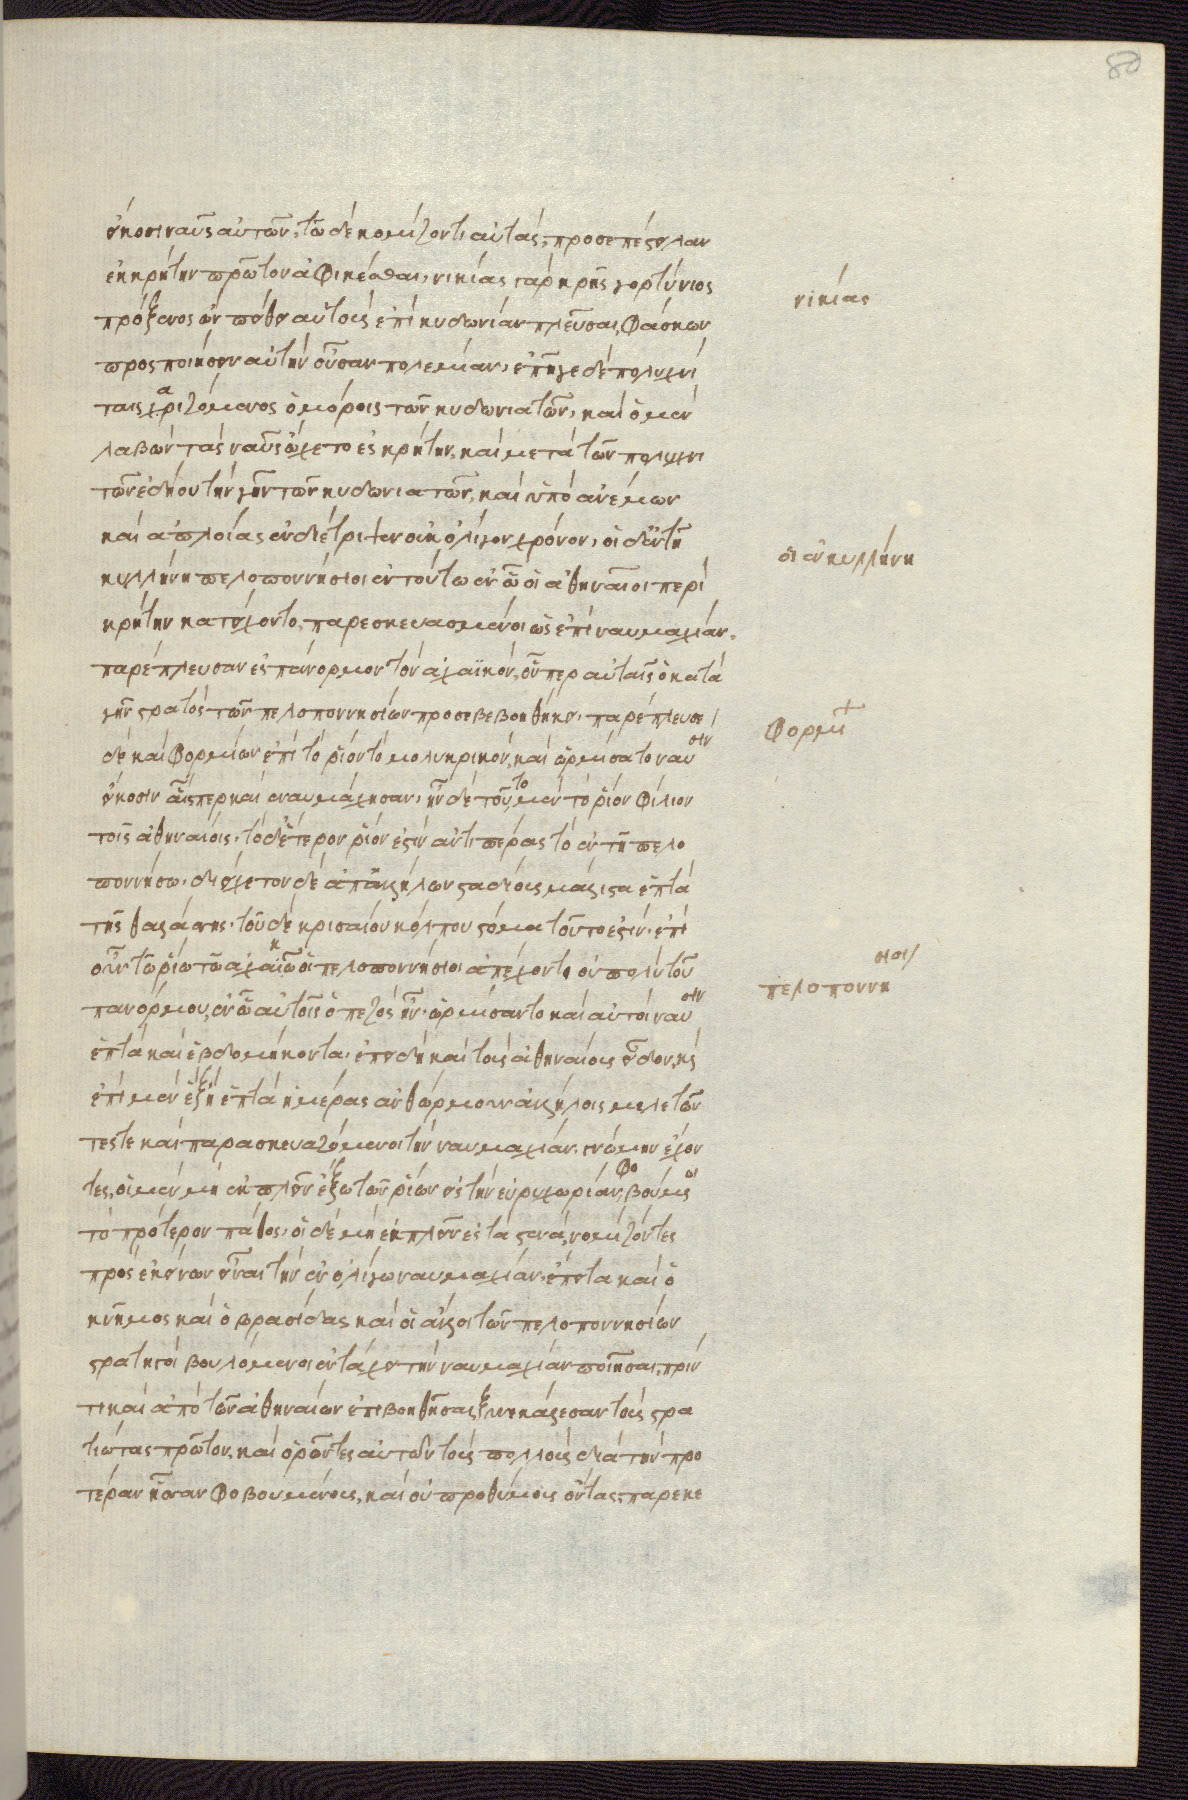 80
εἴκοσι ναῦς αὐτῶν· τῶ δὲ κομίζοντι αὐτάς, προσεπέστειλαν
ἐς κρήτην πρῶτον ἀφικέσθαι· νικίας γὰρ κρὴς γορτύνιος
πρόξενος ὢν πείθει αὐτοὺς ἐπὶ κυδωνίαν πλεῦσαι, φάσκων
προσποιήσειν αὐτὴν οὖσαν πολεμίαν· ἐπῆγε δὲ πολιχνί
ταις χαριζόμενος ὁμόροις τῶν κυδωνιατῶν· καὶ ὁ μὲν
λαβὼν τὰς ναῦς ὤχετο ἐς κρήτην, καὶ μετὰ τῶν πολιχνι
τῶν ἐδήου τὴν γῆν τῶν κυδωνιατῶν, καὶ ὑπὸ ἀνέμων
καὶ ἀπλοίας ἐνδιέτριψεν οὐκ ὀλίγον χρόνον· οἱ δ' ἐν τῆ
κυλλήνη πελοποννήσιοι ἐν τούτω ἐν ὧ οἱ ἀθηναῖοι περὶ
κρήτην κατείχοντο, παρεσκευασμένοι ὡς ἐπὶ ναυμαχίαν.
παρέπλευσαν ἐς πάνορμον τὸν ἀχαϊκόν, οὗπερ αὐταῖς ὁ κατὰ
γῆν στρατὸς τῶν πελοποννησίων προσεβεβοηθήκει· παρέπλευσε
δὲ καὶ φορμίων ἐπὶ τὸ ῥίον τὸ μολυκρικόν, καὶ ὡρμίσατο ναυσὶν
εἴκοσιν αἷσπερ καὶ ἐναυμάχησαν· ἦν δὲ τοῦτο μὲν τὸ ῥίον φίλιον
τοῖς ἀθηναίοις· τὸ δ' ἕτερον ῥίον ἐστὶν ἀντιπέρας τὸ ἐν τῆ πελο
ποννήσω· διείχετον δὲ ἀπ' ἀλλήλων σταδίους μάλιστα ἑπτὰ
τῆς θαλάσσης· τοῦ δὲ κρισαίου κόλπου στόμα τοῦτο ἐστίν· ἐπὶ
οὖν τῶ ῥίω τῶ ἀχαϊκῶ οἱ πελοποννήσιοι ἀπέχοντι οὐ πολὺ τοῦ
πανόρμου, ἐν ὧ αὐτοῖς ὁ πεζὸς ἦν. ὡρμίσαντο καὶ αὐτοὶ ναυσὶν
ἑπτὰ καὶ ἑβδομήκοντα· ἐπειδὴ καὶ τοὺς ἀθηναίους εἶδον, κς
ἐπὶ μὲν ἓξ ἢ ἑπτὰ ἡμέρας ἀνθώρμουν ἀλλήλοις μελετῶν
τές τε καὶ παρασκευαζόμενοι τὴν ναυμαχίαν· γνώμην ἔχον
τες, οἱ μὲν μὴ ἐκπλεῖν ἔξω τῶν ῥίων εἰς τὴν εὐρυχωρίαν, φοβούμενοι
τὸ πρότερον πάθος· οἱ δὲ μὴ ἐκπλεῖν ἐς τὰ στενά, νομίζοντες
πρὸς ἐκείνων εἶναι τὴν ἐν ὀλίγω ναυμαχίαν. ἔπειτα καὶ ὁ
κνῆμος καὶ ὁ βρασίδας καὶ οἱ ἄλλοι τῶν πελοποννησίων
στρατηγοὶ βουλόμενοι ἐν τάχει τὴν ναυμαχίαν ποιῆσαι, πρίν
τι καὶ ἀπὸ τῶν ἀθηναίων ἐπιβοηθῆσαι, ξυνεκάλεσαν τοὺς στρα
τιώτας πρῶτον, καὶ ὁρῶντες αὐτῶν τοὺς πολλοὺς διὰ τὴν προ
τέραν ἧσσαν φοβουμένους, καὶ οὐ προθύμους ὄντας, παρεκε
νικίας
οἱ ἐν κυλλήνη
φορμί
πελοποννήσιοι